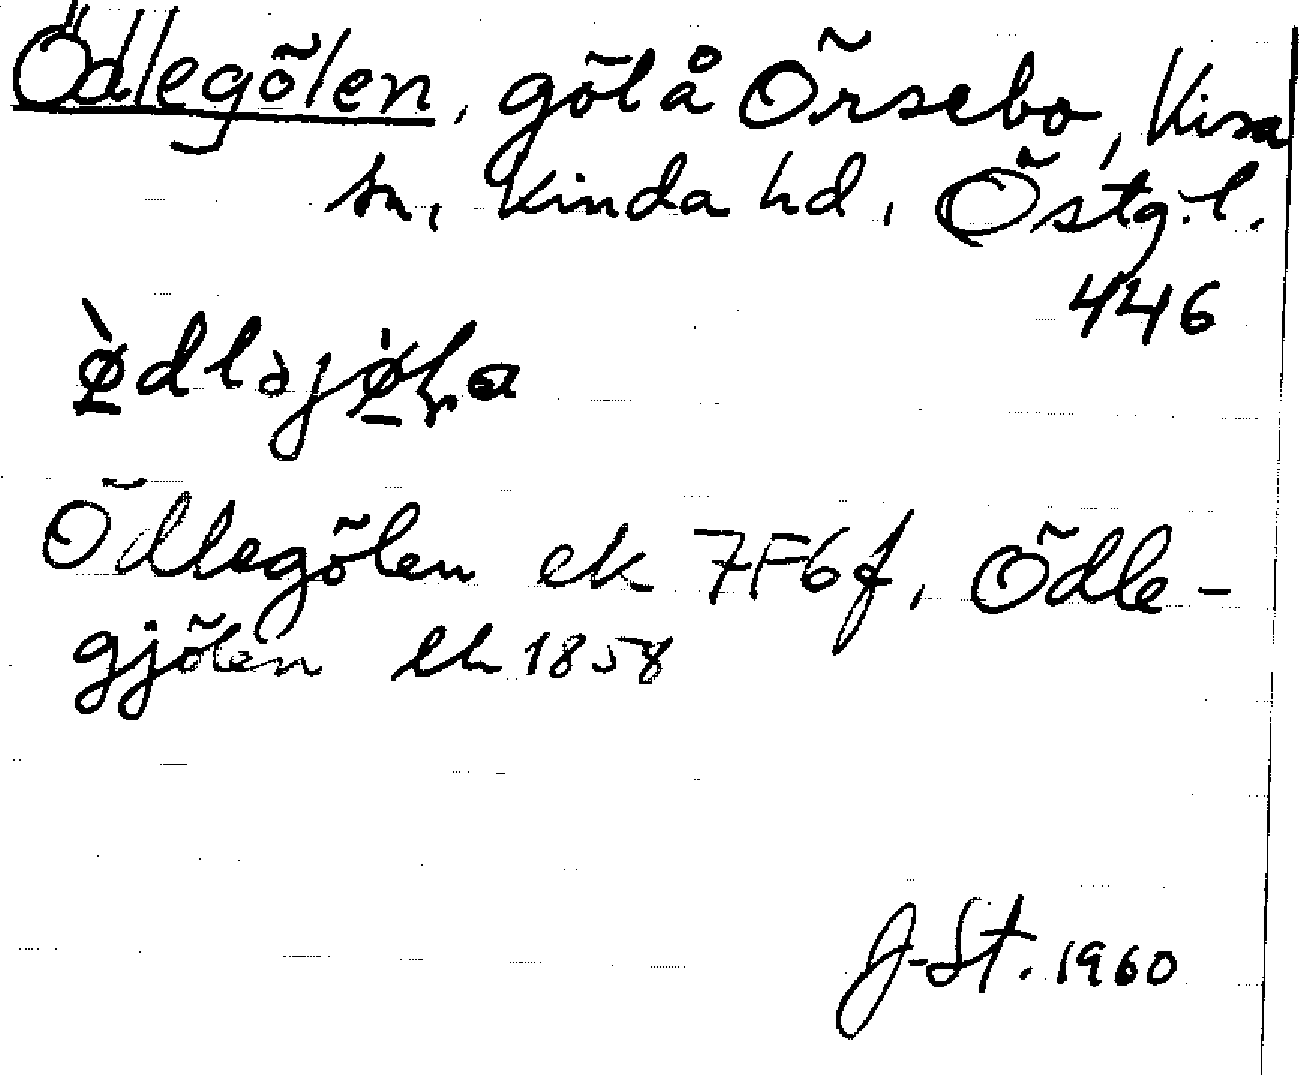 Ödlegölen, göl å Örsebo, Kisa
sn, Kinda hd, Östg.l.
446
Ödlegölen ek 7F6f, Ödle-
gjölen ek 1858
J-St. 1960